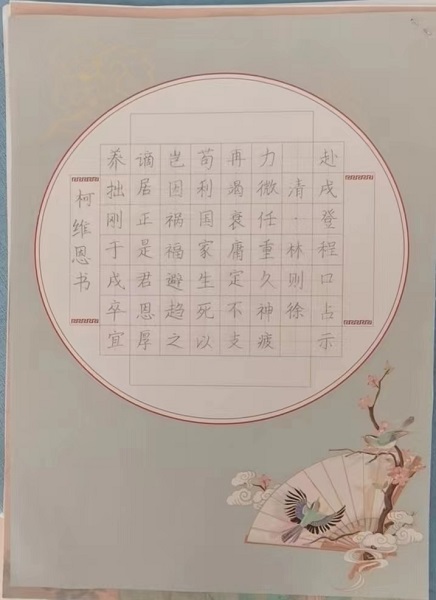 赴戍登程口占示
清·林则徐
力微任重久神疲
再竭衰庸定不支
苟利国家生死以
岂因祸福避趋之
谪居正是君恩厚
养拙刚于戍卒宜
柯维恩书